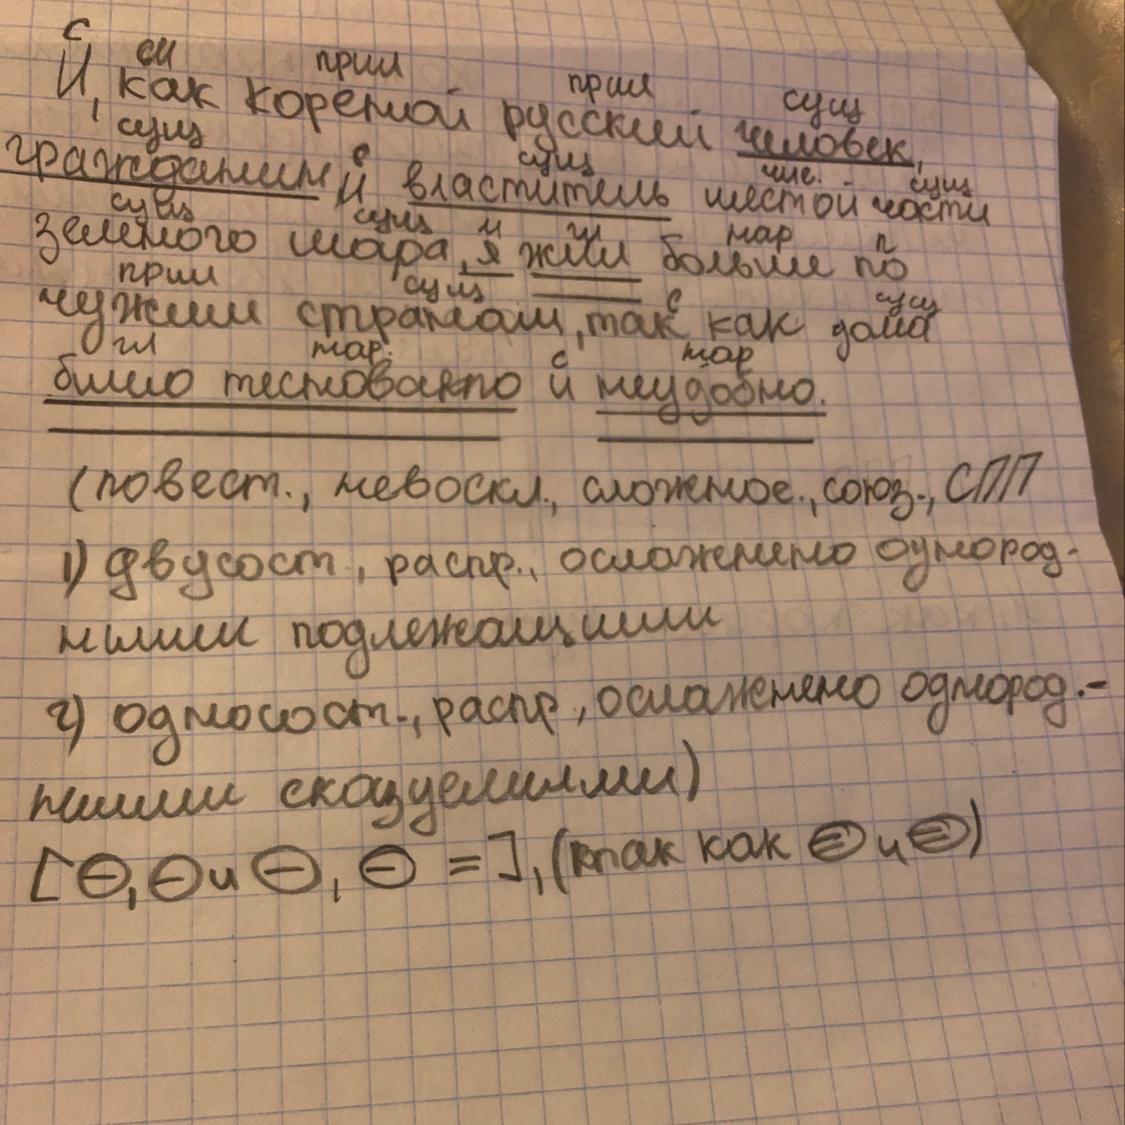 с
сш прил прил сущ
И, как коренной русский человек,
сущ с сущ чис. сущ
гражданин и властитель шестой части
сущ сущ м гл нар п
земного шара, я жил больше по
прил сущ с сущ
чужим странам, так как дома
гл нар. с нар
было тесновато и неудобно.
(повест., невоскл., сложное., союз., СПП
1) двусост., распр., осложнено однород-
ными подлежащими
2) односост., распр, осложнено однород.-
ными сказуемыми)
[⊖, ⊖ и ⊖, ⊖ =], (так как ⊜ и ⊜)